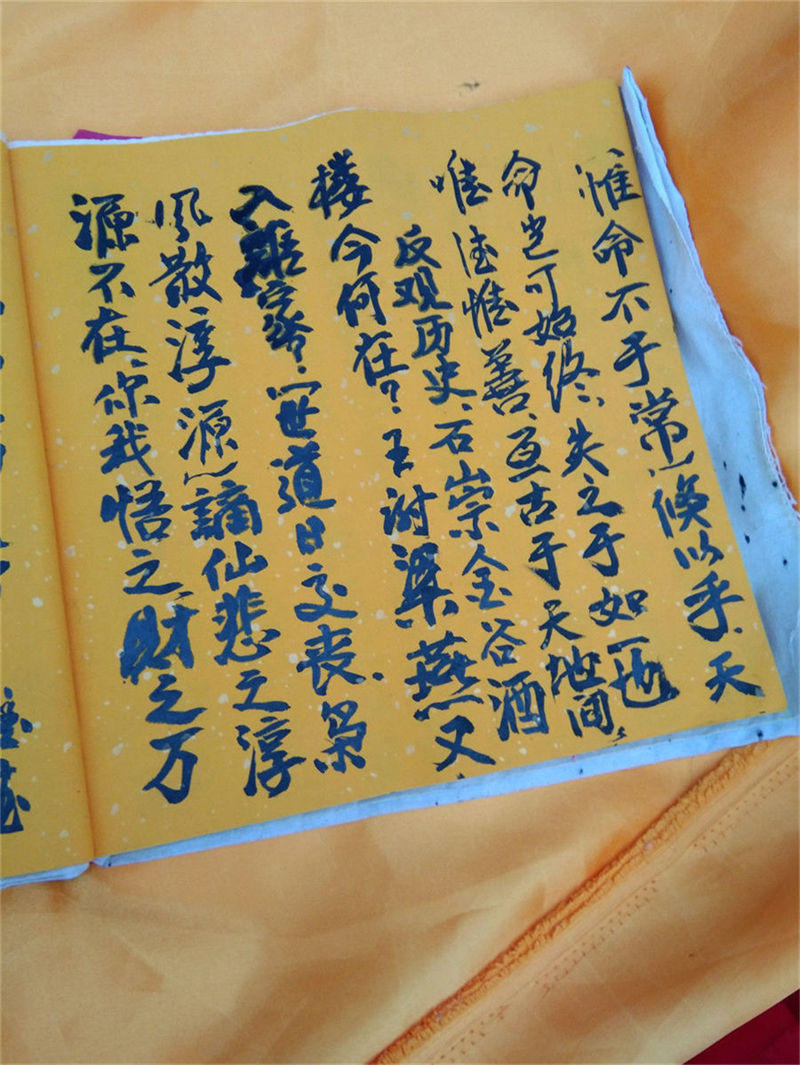 惟命不于常、倏以乎、天
命岂可始终、失之于如一也
唯德惟善、亘古于天地间
反观历史、石崇金谷酒
楼今何在？王谢梁燕又
入谁家？世道日交丧、枭
风散淳源、谪仙悲之淳
源不在、你我悟之财之万